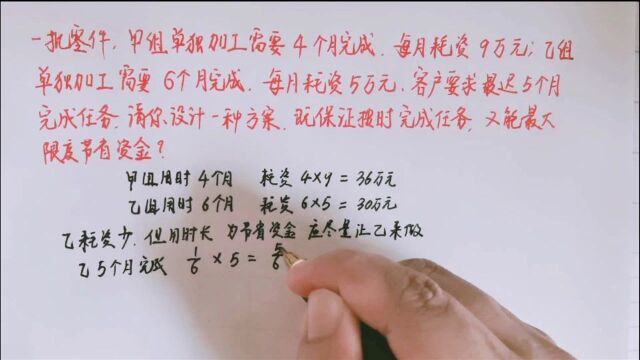 一批零件,甲组单独加工需要4个月完成.每月耗资9万元;乙组
单独加工需要6个月完成.每月耗资5万元.客户要求最迟5个月
完成任务,请你设计一种方案.既保证按时完成任务,又能最大
限度节省资金?
甲组用时4个月 耗资 4×9=36万元
乙组用时6个月 耗资 6×5=30万元
乙耗资少.但用时长 为节省资金 应尽量让乙来做
乙5个月完成 1/6 × 5 = 5/6